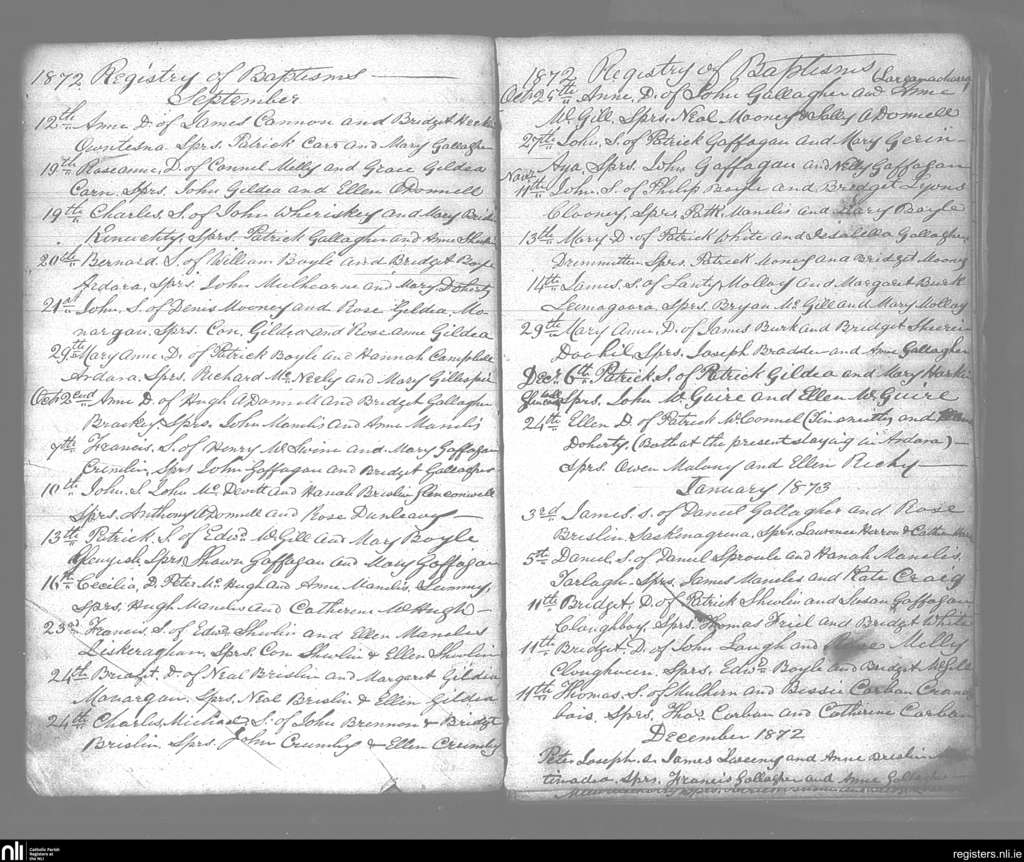 1872 Registry of Baptisms
September
12th Anne D. of James Cannon and Bridget
Sprs. Patrick Carr and Mary Gallagher
19th Roseanne, D. of Connel Melly and Grace Gildea
Carn, Sprs. John Gildea and Ellen O'Donnell
19th Charles, S. of John Wheriskey and Mary
Sprs. Patrick Gallagher and Anne
20th Bernard, S. of William Boyle and Bridget Boyle
Ardara, Sprs. John Mulhearne and Mary Doherty
21st John, S. of Denis Mooney and Rose Gildea, Mo-
nargan, Sprs. Con. Gildea and Rose anne Gildea
29th Mary Anne, D. of Patrick Boyle and Hannah Campbell
Ardara. Sprs. Richard Mc. Neely and Mary Gillespie
Octr. 2nd Anne D. of Hugh O'Donnell and Bridget Gallagher
Brackey, Sprs. John Manelis and Anne Manelis
7th Francis, S. of Henry McSwine and Mary Gaffagan
Crimlin, Sprs John Gaffagan and Bridget Gallagher
10th John, S. John Mc. Devitt and Hanah Brislin Glenconwell
Sprs. Anthony O'Donnell and Rose Dunleavy
13th Patrick, S. of Edwd. McGill and Mary Boyle
Sprs. Shawn Gaffagan and Mary Gaffagan
16th Cecilia, D. Peter Mc. Hugh and Anne Manelis,
Sprs. Hugh Manelis and Catherine McHugh
23rd Francis, S. of Edwd. Shovlin and Ellen Manelis
Liskeraghan, Sprs. Con Shovlin & Ellen Shovlin
24th Bridget, D. of Neal Brislin and Margaret Gildea
Monargan, Sprs. Neal Brislin & Ellen Gildea
24th Charles Michael, S. of John Brennon & Bridget
Brislin. Sprs. John Crumby & Ellen Crumby
1872 Registry of Baptisms
Oct. 25th Anne, D. of John Gallagher and Anne
McGill, Sprs. Neal Mooney & Sally O'Donnell
27th John, S. of Patrick Gaffagan and Mary Gerin
Aga, Sprs. John Gaffagan and Nelly Gaffagan
Novr. 11th John, S. of Philip Boyle and Bredget Lyons
Clooney, Sprs. Patk. Manelis and Mary Boyle
13th Mary D. of Patrick White and Issabella Gallagher
Sprs. Patrick Money and Bridget Moony
14th James, S. of Lanty Molloy and Margaret Burk
Sprs. Bryan Mc. Gill and Mary Molloy
29th Mary Anne, D. of James Burk and Bridget
Sprs. Joseph Bradden and Anne Gallagher
Decr. 6th Patrick, S. of Patrick Gildea and Mary
Sprs. John McGuire and Ellen McGuire
24th Ellen D. of Patrick McConnel and
Doherty. (Both at the present staying in Ardara)
Sprs. Owen Malony and Ellen Richy
January 1873
3rd James, S. of Daniel Gallagher and Rose
Brislin, Sprs. Lawrence Herron &
5th Daniel, S. of Daniel Sproule and Hanah Manelis,
Sprs. James Maneles and Kate Craig
11th Bridget, D. of Patrick Shovlin and Susan Gaffagan
Claughboy, Sprs. Thomas Friel and Bridget White
11th Bridget, D. of John Laugh and Melly
Sprs. Edwd. Boyle and Bridget McGill
11th Thomas, S. of Mulhern and Bessie Corban
Sprs. Thos. Corban and Catherine Corban
December 1872
Peter Joseph, S. James Sweeny and Anne Brislin
Sprs. Francis Gallagher and Anne Gallagher
nli
Catholic Parish
Registers at
the NLI
registers.nli.ie